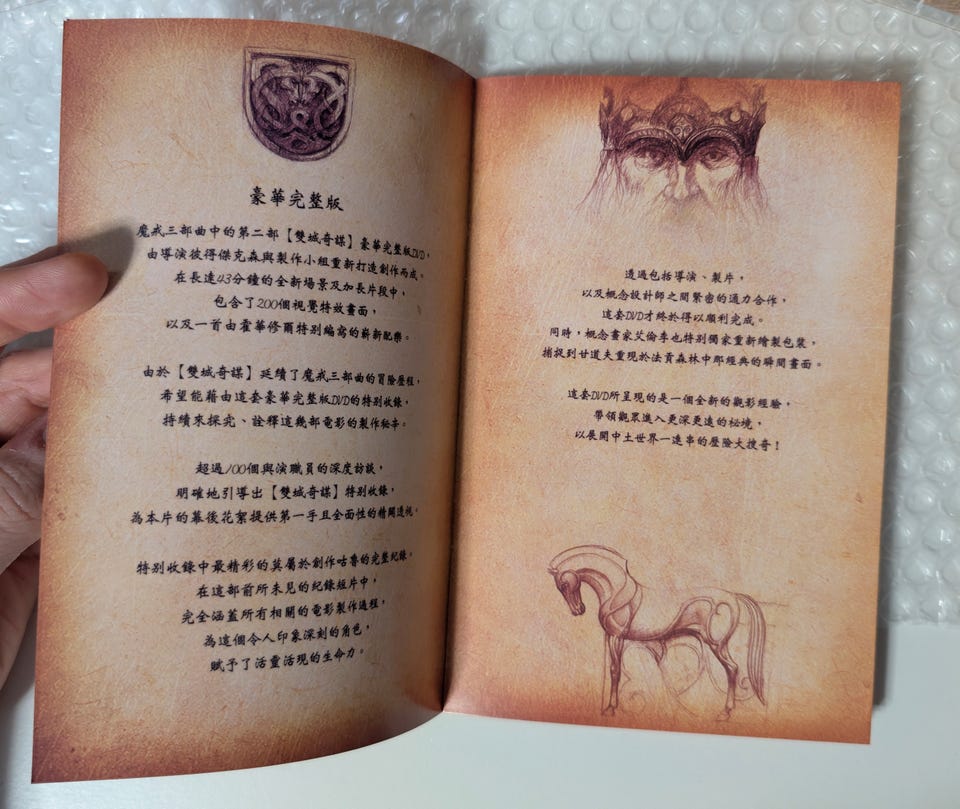 豪華完整版
魔戒三部曲中的第二部【雙城奇謀】豪華完整版DVD,
由導演彼得傑克森與製作小組重新打造創作而成。
在長達43分鐘的全新場景及加長片段中,
包含了200個視覺特效畫面,
以及一首由霍華修爾特別編寫的嶄新配樂。
由於【雙城奇謀】延續了魔戒三部曲的冒險歷程,
希望能藉由這套豪華完整版DVD的特別收錄,
持續來探究、詮釋這幾部電影的製作秘辛。
超過100個與演職員的深度訪談,
明確地引導出【雙城奇謀】特別收錄,
為本片的幕後花絮提供第一手且全面性的精闢透視。
特別收錄中最精彩的莫屬於創作咕魯的完整紀錄,
在這部前所未見的紀錄短片中,
完全涵蓋所有相關的電影製作過程,
為這個令人印象深刻的角色,
賦予了活靈活現的生命力。
透過包括導演、製片,
以及概念設計師之間緊密的通力合作,
這套DVD才終於得以順利完成。
同時,概念畫家艾倫李也特別獨家重新繪製包裝,
捕捉到甘道夫重現於法貢森林中那經典的瞬間畫面。
這套DVD所呈現的是一個全新的觀影經驗,
帶領觀眾進入更深更遠的祕境,
以展開中土世界一連串的歷險大搜奇!